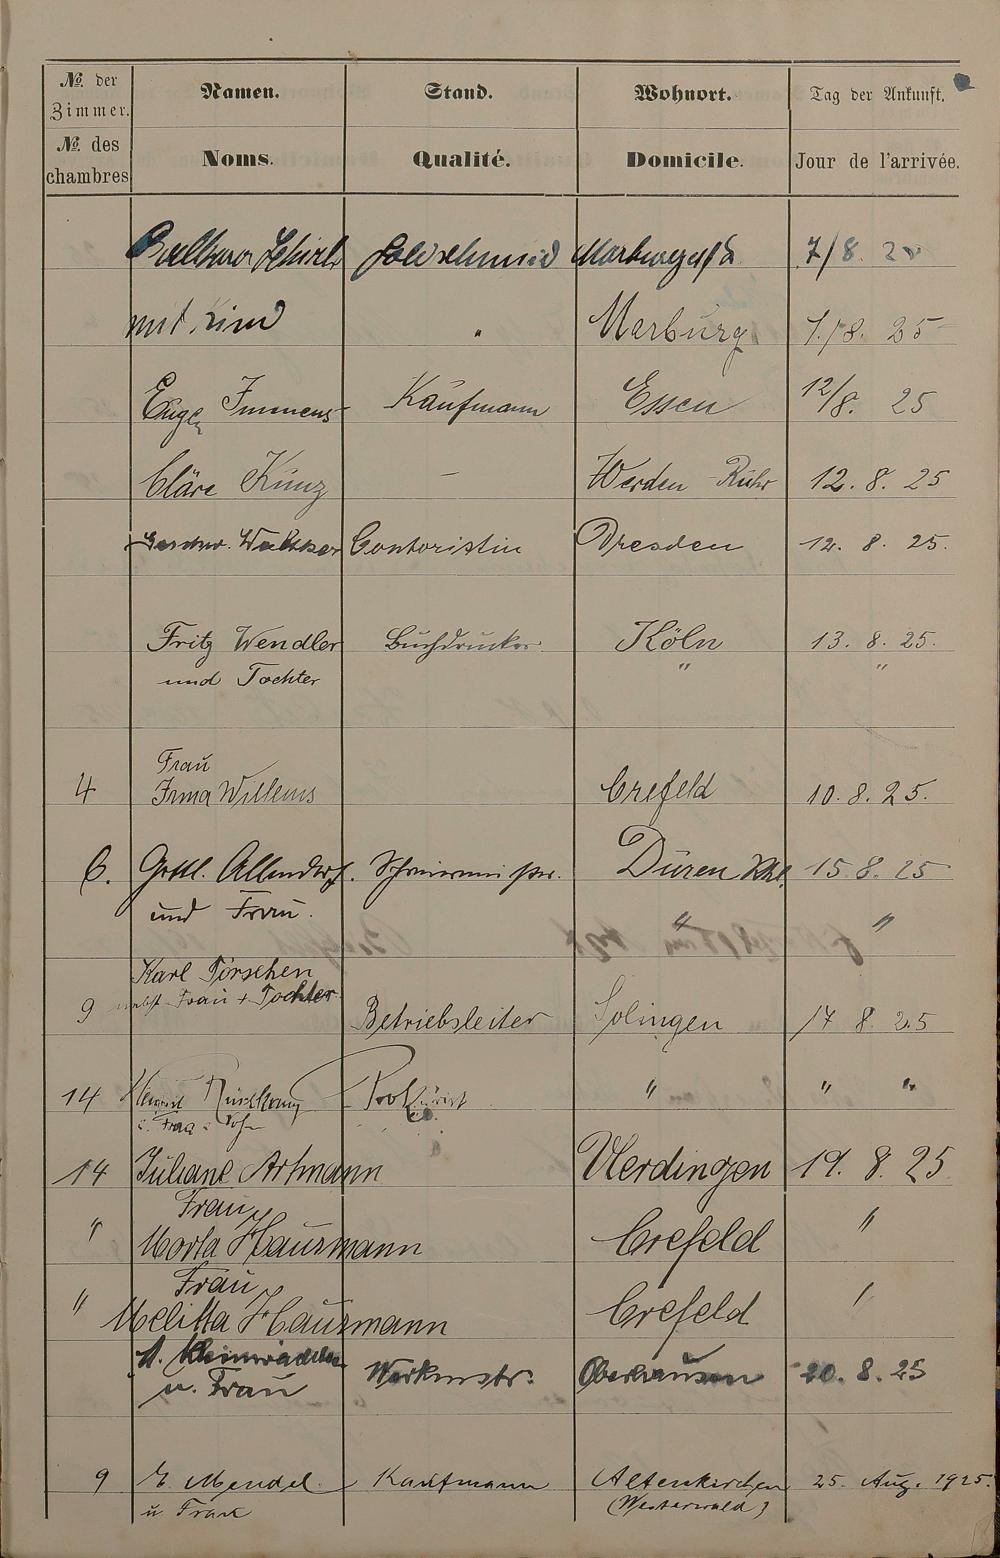 № der Zimmer. Namen. Stand. Wohnort. Tag der Ankunft.
№ des chambres Noms. Qualité. Domicile. Jour de l'arrivée.
7/8. 25
mit Kind " Marburg 7./8. 25
Eugen Immens Kaufmann Essen 12/8. 25
Cläre Kunz — Werden Ruhr 12. 8. 25
Contoristin Dresden 12. 8. 25.
Fritz Wendler Buchdrucker Köln 13. 8. 25.
und Tochter " "
Frau
4 Irma Willems Crefeld 10. 8. 25.
6. Gottl. Allendorf. Düren Rhl. 15. 8. 25
und Frau. " "
Karl Pörschen
9 nebst Frau + Tochter Betriebsleiter Solingen 17 8. 25
14 Prokurist " " "
u. Frau u. Sohn
14 Juliane Artmann Uerdingen 19. 8. 25
Frau
" Marta Hausmann Crefeld "
Frau
" Melitta Hausmann Crefeld "
A. Kleinwächter
u. Frau Werkmstr. Oberhausen 20. 8. 25
9 E. Mendel Kaufmann Altenkirchen 25. Aug. 1925.
u Frau (Westerwald)